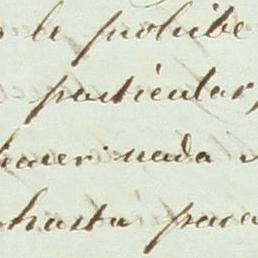 le prohibe
particular,
hacer nada
hasta para